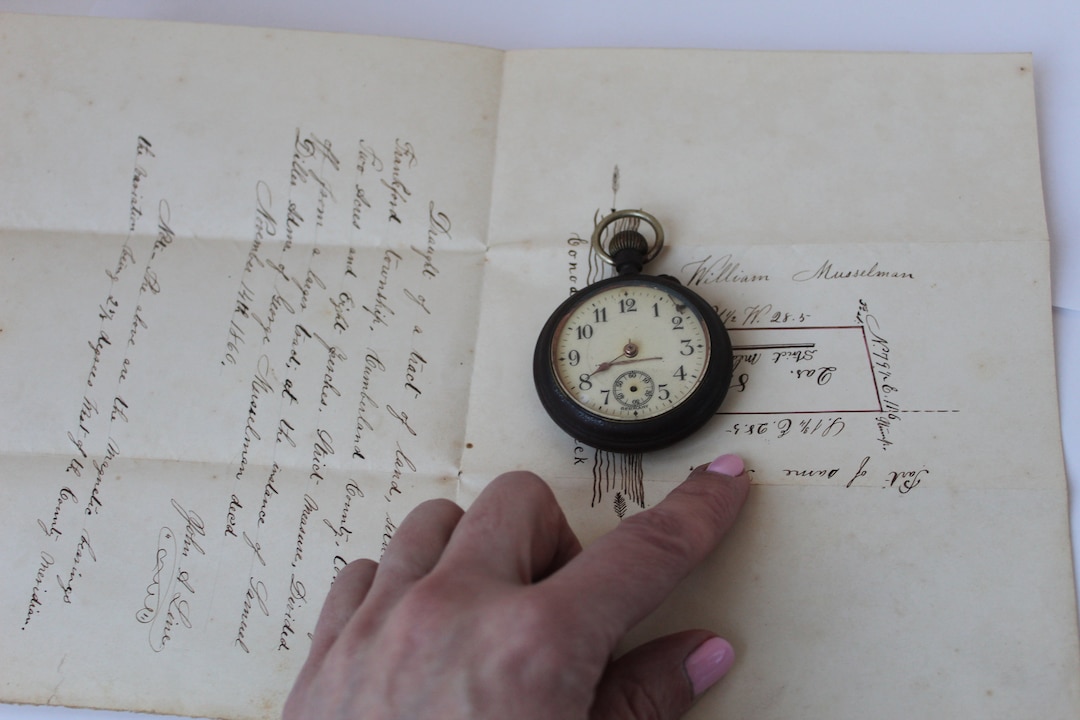 Draught of a tract of land,
Frankford township, Cumberland County,
Two Acres and Eight perches, Strict Measure, Divided
off from a larger tract, at the instance of Samuel
Diller Adm. of George Musselman decd
November 14th 1860.
John A Laine
Note—The above are the Magnetic bearings
the variation being 2¾ degrees West of the County Meridian.
Conod
ek
William Musselman
Strict
2 as.
S. 1¾ E. 28.5
Part of same
12
1
2
3
4
5
7
8
9
10
11